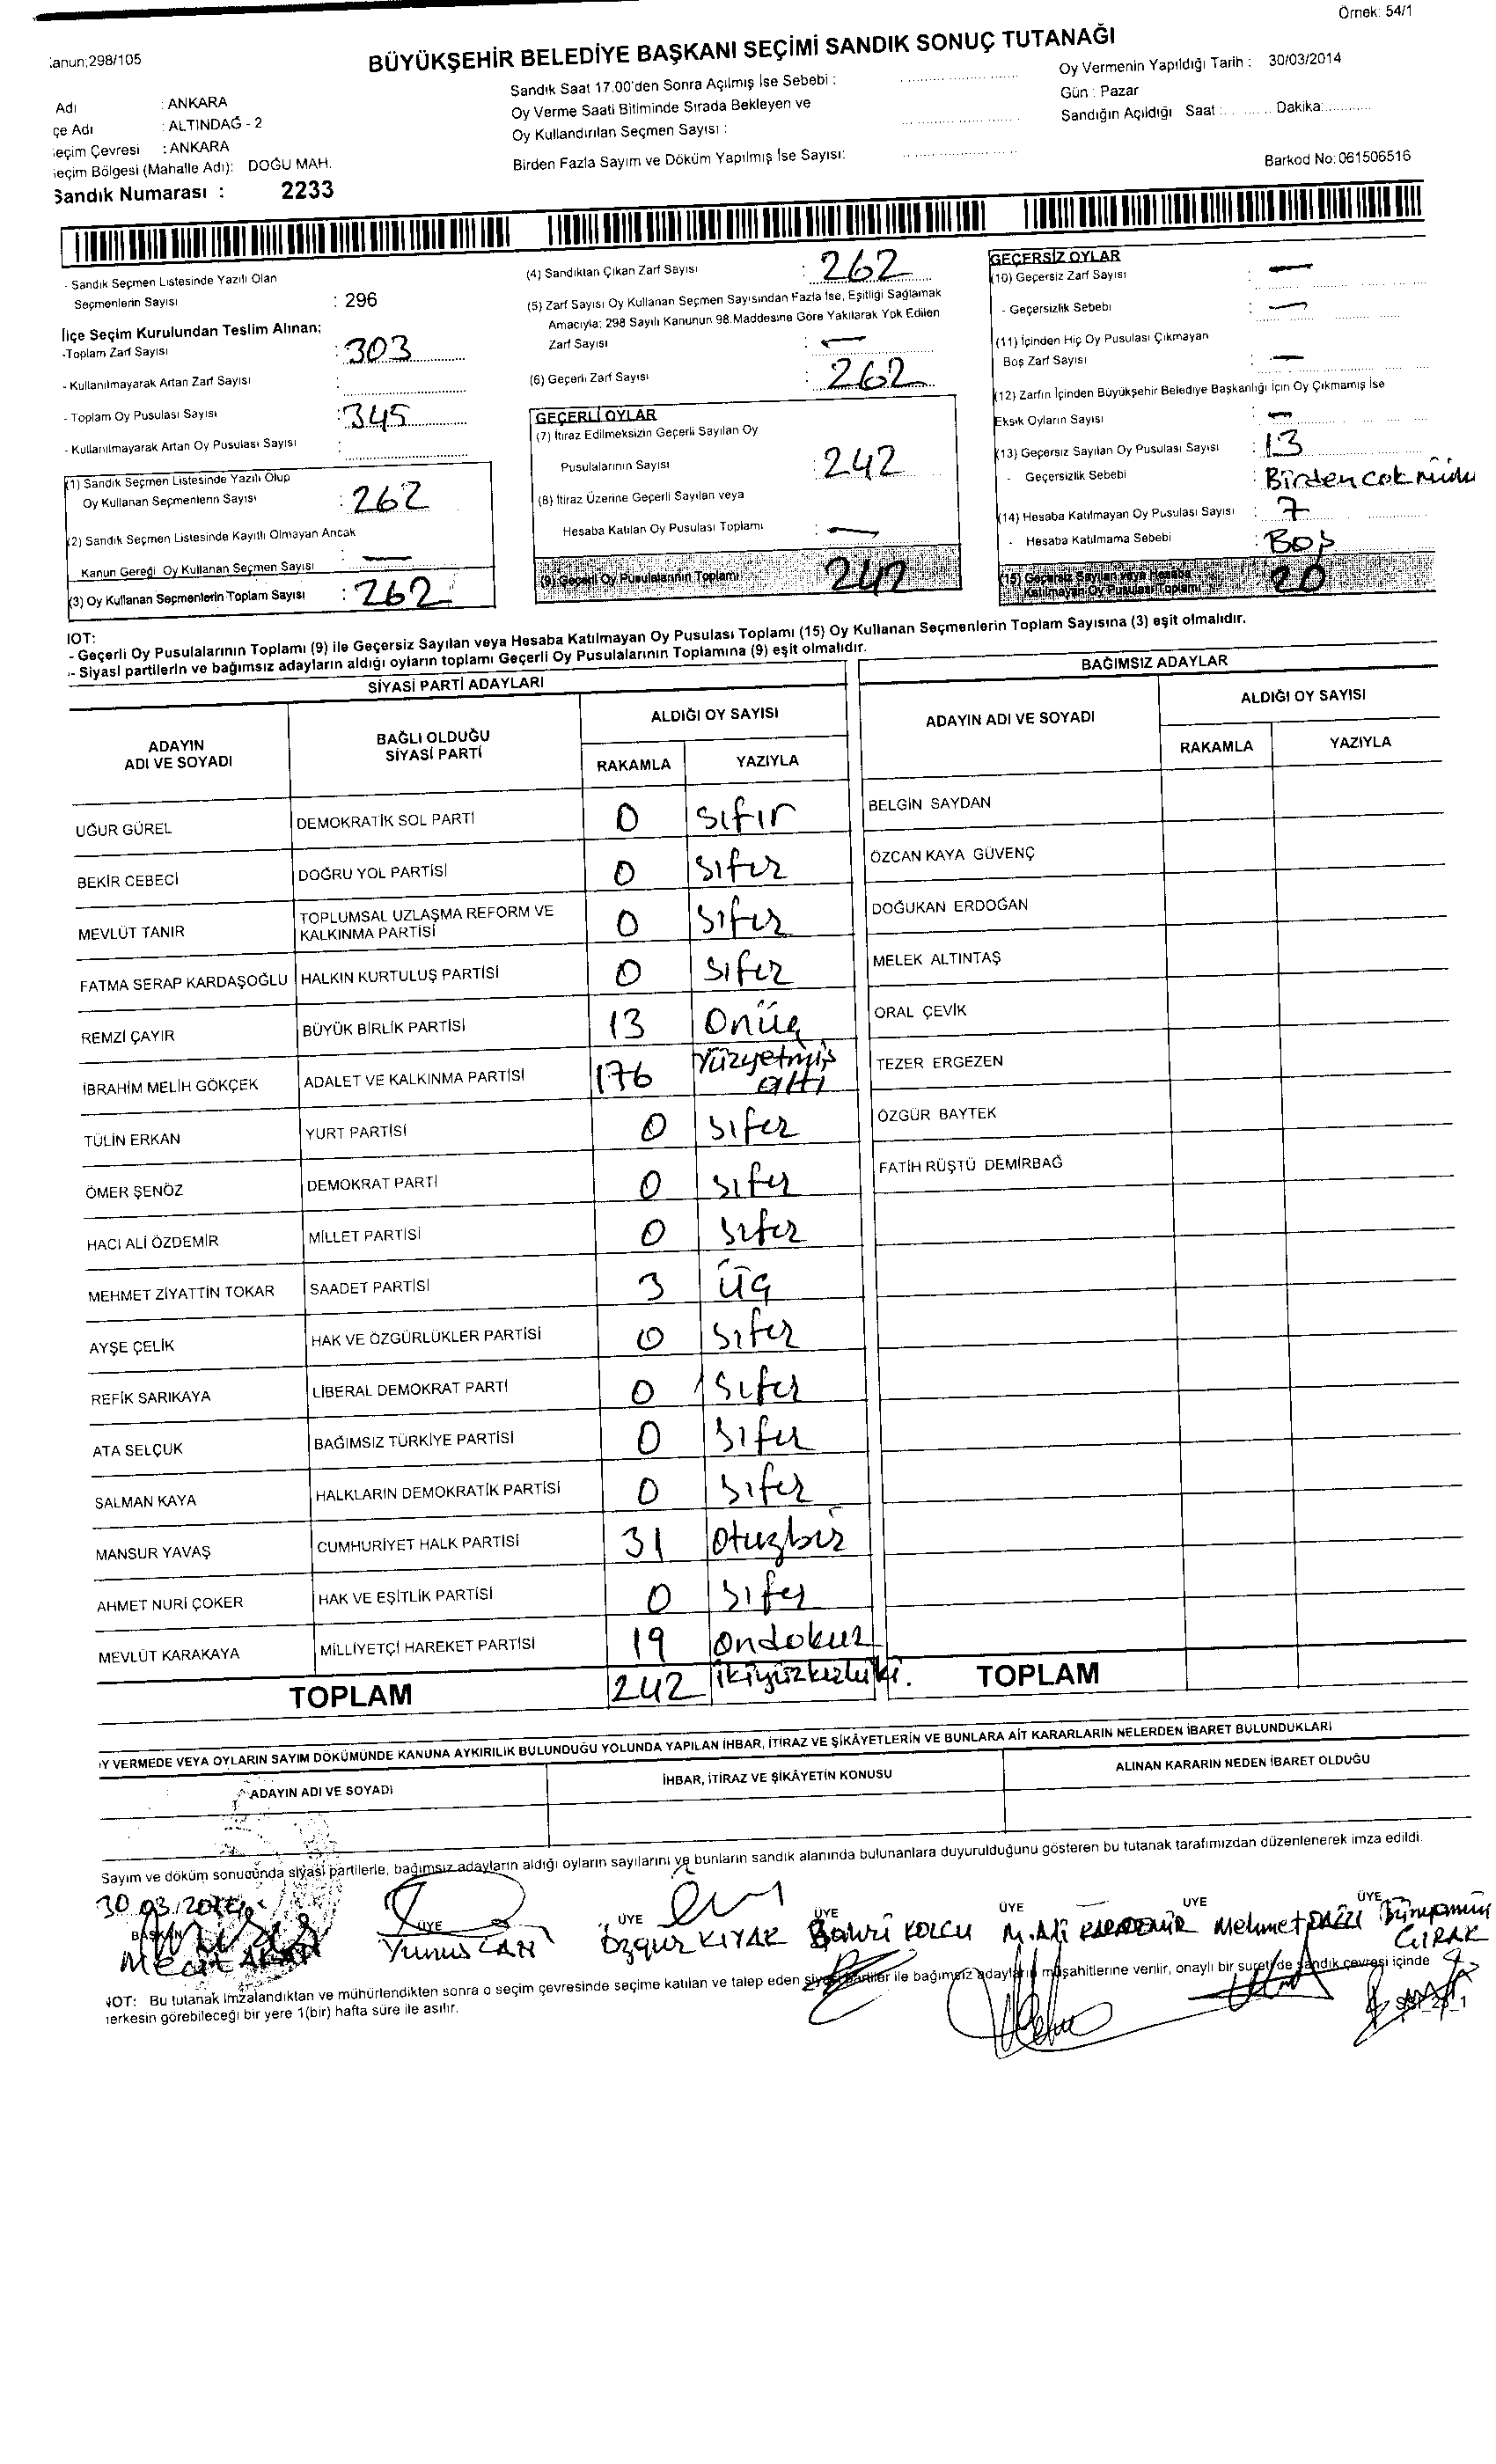 Örnek: 54/1
:anun;298/105
BÜYÜKŞEHİR BELEDİYE BAŞKANI SEÇİMİ SANDIK SONUÇ TUTANAĞI
Adı : ANKARA
çe Adı : ALTINDAĞ - 2
eçim Çevresi : ANKARA
eçim Bölgesi (Mahalle Adı): DOĞU MAH.
Sandık Numarası : 2233
Sandık Saat 17.00'den Sonra Açılmış İse Sebebi :
Oy Verme Saati Bitiminde Sırada Bekleyen ve
Oy Kullandırılan Seçmen Sayısı :
Birden Fazla Sayım ve Döküm Yapılmış İse Sayısı:
Oy Vermenin Yapıldığı Tarih : 30/03/2014
Gün : Pazar
Sandığın Açıldığı Saat :............ Dakika:............
Barkod No: 061506516
- Sandık Seçmen Listesinde Yazılı Olan
Seçmenlerin Sayısı : 296
İlçe Seçim Kurulundan Teslim Alınan:
-Toplam Zarf Sayısı : 303
- Kullanılmayarak Artan Zarf Sayısı :
- Toplam Oy Pusulası Sayısı : 345
- Kullanılmayarak Artan Oy Pusulası Sayısı :
(1) Sandık Seçmen Listesinde Yazılı Olup
Oy Kullanan Seçmenlerin Sayısı : 262
(2) Sandık Seçmen Listesinde Kayıtlı Olmayan Ancak
Kanun Gereği Oy Kullanan Seçmen Sayısı : —
(3) Oy Kullanan Seçmenlerin Toplam Sayısı : 262
(4) Sandıktan Çıkan Zarf Sayısı : 262
(5) Zarf Sayısı Oy Kullanan Seçmen Sayısından Fazla İse, Eşitliği Sağlamak
Amacıyla; 298 Sayılı Kanunun 98.Maddesine Göre Yakılarak Yok Edilen
Zarf Sayısı : —
(6) Geçerli Zarf Sayısı : 262
GEÇERLİ OYLAR
(7) İtiraz Edilmeksizin Geçerli Sayılan Oy
Pusulalarının Sayısı : 242
(8) İtiraz Üzerine Geçerli Sayılan veya
Hesaba Katılan Oy Pusulası Toplamı : —
(9) Geçerli Oy Pusulalarının Toplamı 242
GEÇERSİZ OYLAR
(10) Geçersiz Zarf Sayısı : —
- Geçersizlik Sebebi : —
(11) İçinden Hiç Oy Pusulası Çıkmayan
Boş Zarf Sayısı : —
(12) Zarfın İçinden Büyükşehir Belediye Başkanlığı İçin Oy Çıkmamış İse
Eksik Oyların Sayısı : —
(13) Geçersiz Sayılan Oy Pusulası Sayısı : 13
- Geçersizlik Sebebi : Birden çok mühü
(14) Hesaba Katılmayan Oy Pusulası Sayısı : 7
- Hesaba Katılmama Sebebi : Boş
(15) Geçersiz Sayılan veya Hesaba
Katılmayan Oy Pusulası Toplamı 20
IOT:
- Geçerli Oy Pusulalarının Toplamı (9) ile Geçersiz Sayılan veya Hesaba Katılmayan Oy Pusulası Toplamı (15) Oy Kullanan Seçmenlerin Toplam Sayısına (3) eşit olmalıdır.
- Siyasi partilerin ve bağımsız adayların aldığı oyların toplamı Geçerli Oy Pusulalarının Toplamına (9) eşit olmalıdır.
SİYASİ PARTİ ADAYLARI
ADAYIN ADI VE SOYADI BAĞLI OLDUĞU SİYASİ PARTİ ALDIĞI OY SAYISI
RAKAMLA YAZIYLA
UĞUR GÜREL DEMOKRATİK SOL PARTİ 0 sıfır
BEKİR CEBECİ DOĞRU YOL PARTİSİ 0 sıfır
MEVLÜT TANIR TOPLUMSAL UZLAŞMA REFORM VE KALKINMA PARTİSİ 0 sıfır
FATMA SERAP KARDAŞOĞLU HALKIN KURTULUŞ PARTİSİ 0 sıfır
REMZİ ÇAYIR BÜYÜK BİRLİK PARTİSİ 13 Onüç
İBRAHİM MELİH GÖKÇEK ADALET VE KALKINMA PARTİSİ 176 Yüzyetmiş altı
TÜLİN ERKAN YURT PARTİSİ 0 sıfır
ÖMER ŞENÖZ DEMOKRAT PARTİ 0 sıfır
HACI ALİ ÖZDEMİR MİLLET PARTİSİ 0 sıfır
MEHMET ZİYATTİN TOKAR SAADET PARTİSİ 3 üç
AYŞE ÇELİK HAK VE ÖZGÜRLÜKLER PARTİSİ 0 sıfır
REFİK SARIKAYA LİBERAL DEMOKRAT PARTİ 0 sıfır
ATA SELÇUK BAĞIMSIZ TÜRKİYE PARTİSİ 0 sıfır
SALMAN KAYA HALKLARIN DEMOKRATİK PARTİSİ 0 sıfır
MANSUR YAVAŞ CUMHURİYET HALK PARTİSİ 31 otuzbir
AHMET NURİ ÇOKER HAK VE EŞİTLİK PARTİSİ 0 sıfır
MEVLÜT KARAKAYA MİLLİYETÇİ HAREKET PARTİSİ 19 ondokuz
TOPLAM 242 ikiyüzkırkiki.
BAĞIMSIZ ADAYLAR
ADAYIN ADI VE SOYADI ALDIĞI OY SAYISI
RAKAMLA YAZIYLA
BELGİN SAYDAN
ÖZCAN KAYA GÜVENÇ
DOĞUKAN ERDOĞAN
MELEK ALTINTAŞ
ORAL ÇEVİK
TEZER ERGEZEN
ÖZGÜR BAYTEK
FATİH RÜŞTÜ DEMİRBAĞ
TOPLAM
Y VERMEDE VEYA OYLARIN SAYIM DÖKÜMÜNDE KANUNA AYKIRILIK BULUNDUĞU YOLUNDA YAPILAN İHBAR, İTİRAZ VE ŞİKÂYETLERİN VE BUNLARA AİT KARARLARIN NELERDEN İBARET BULUNDUKLARI
ADAYIN ADI VE SOYADI İHBAR, İTİRAZ VE ŞİKÂYETİN KONUSU ALINAN KARARIN NEDEN İBARET OLDUĞU
Sayım ve döküm sonucunda siyasi partilerle, bağımsız adayların aldığı oyların sayılarını ve bunların sandık alanında bulunanlara duyurulduğunu gösteren bu tutanak tarafımızdan düzenlenerek imza edildi.
30.03.2014
BAŞKAN ÜYE ÜYE ÜYE ÜYE ÜYE ÜYE
Yunus CAN Özgür KIYAK Bahri KOLCU M. Ali KARADEMİR Mehmet
ÇIRAK
NOT: Bu tutanak imzalandıktan ve mühürlendikten sonra o seçim çevresinde seçime katılan ve talep eden siyasi partiler ile bağımsız adayların müşahitlerine verilir, onaylı bir sureti de sandık çevresi içinde
herkesin görebileceği bir yere 1(bir) hafta süre ile asılır.